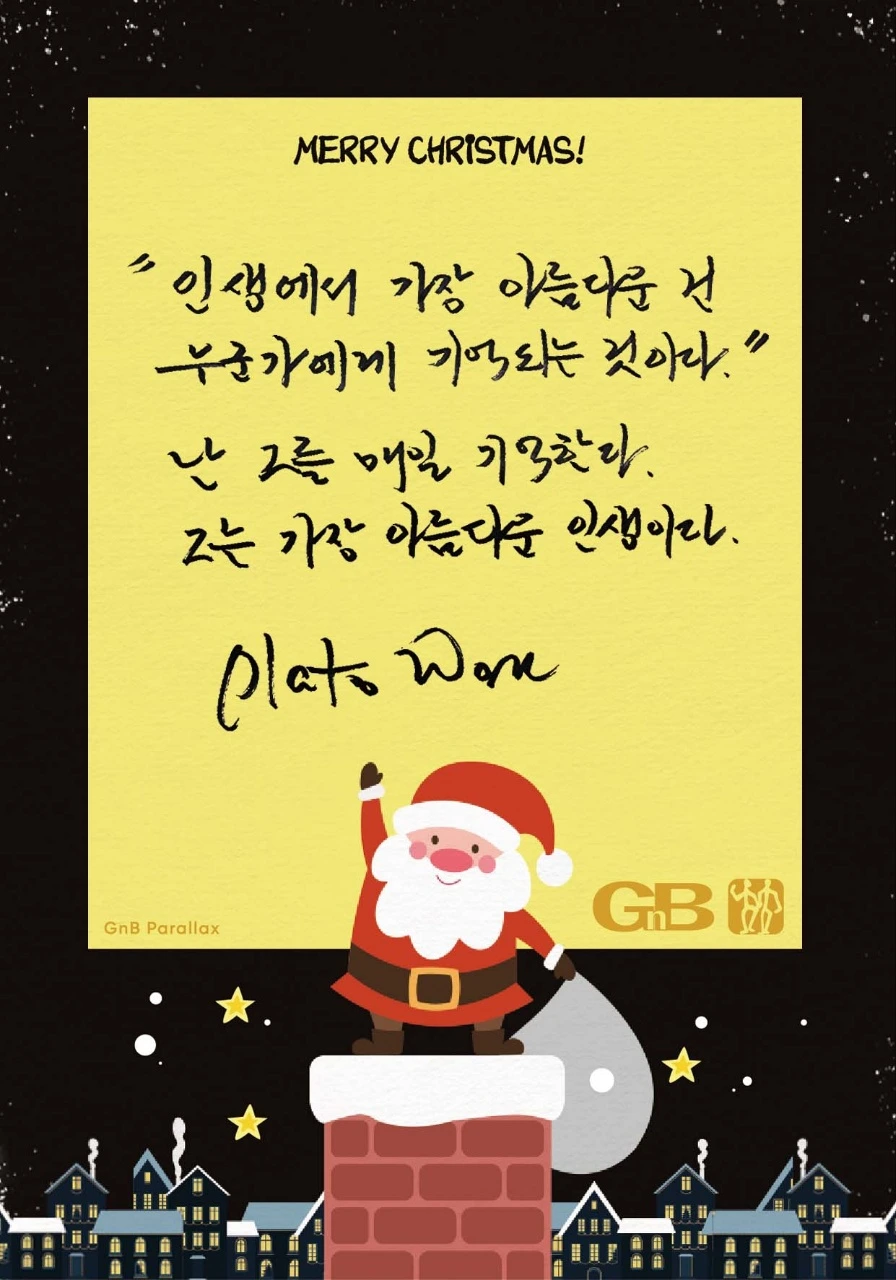 MERRY CHRISTMAS!
"인생에서 가장 아름다운 건
누군가에게 기억되는 것이다."
난 그를 매일 기억한다.
그는 가장 아름다운 인생이다.
Plato Won
GnB Parallax
GnB